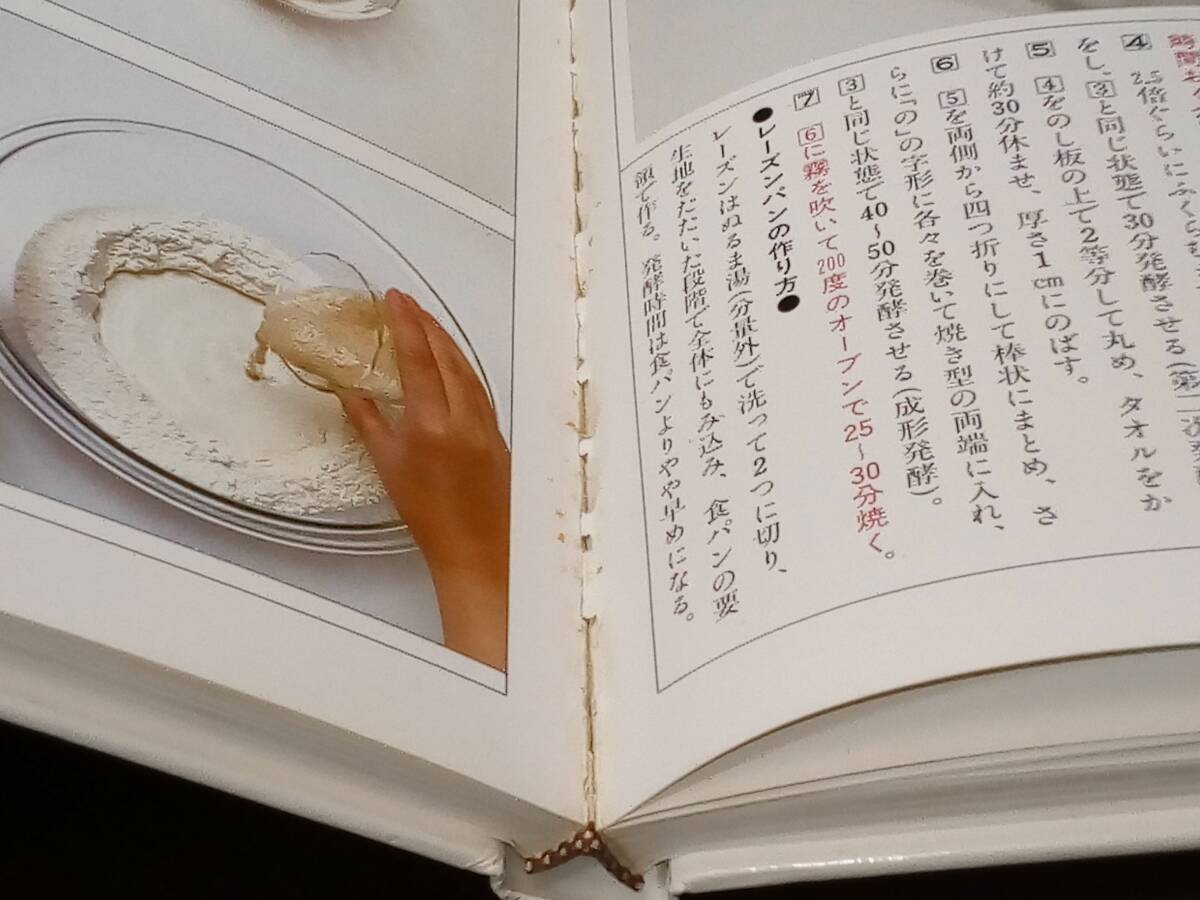 時間
4 2.5倍ぐらいにふくらむ
をし、3と同じ状態で30分発酵させる(第二次発
5 4をのし板の上で2等分して丸め、タオルをか
けて約30分休ませ、厚さ1cmにのばす。
6 5を両側から四つ折りにして棒状にまとめ、さ
らに「の」の字形に各々を巻いて焼き型の両端に入れ、
3と同じ状態で40〜50分発酵させる(成形発酵)。
7 6に霧を吹いて200度のオーブンで25〜30分焼く。
●レーズンパンの作り方●
レーズンはぬるま湯(分量外)で洗って2つに切り、
生地をたたいた段階で全体にもみ込み、食パンの要
領で作る。発酵時間は食パンよりやや早めになる。